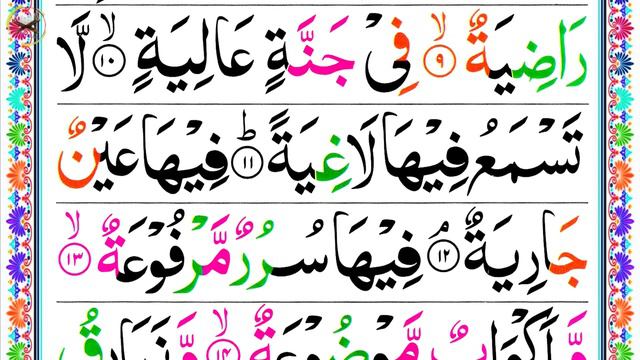 رَاضِيَةٌ ۙ﴿۹﴾ فِیْ جَنَّةٍ عَالِيَةٍ ۙ﴿۱۰﴾ لَّا
تَسْمَعُ فِيْهَا لَاغِيَةً ؕ﴿۱۱﴾ فِيْهَا عَيْنٌ
جَارِيَةٌ ۘ﴿۱۲﴾ فِيْهَا سُرُرٌ مَّرْفُوْعَةٌ ۙ﴿۱۳﴾
وَّ اَكْوَابٌ مَّوْضُوْعَةٌ ۙ﴿۱۴﴾ وَّ نَمَارِقُ